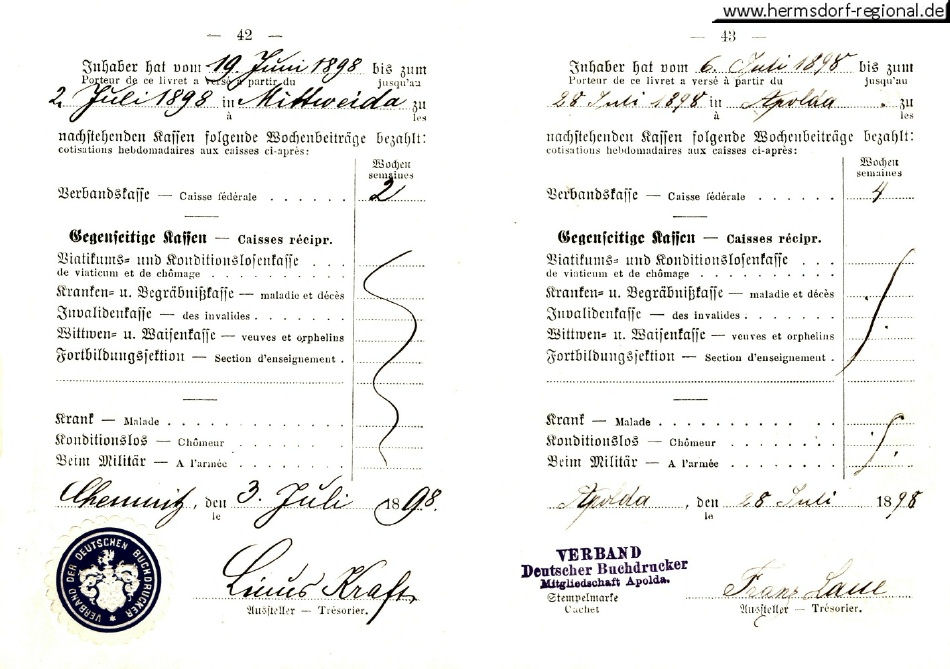 www.hermsdorf-regional.de
— 42 —
Inhaber hat vom 19. Juni 1898 bis zum
Porteur de ce livret a versé à partir du jusqu'au
2. Juli 1898 in Mittweida zu
à les
nachstehenden Kassen folgende Wochenbeiträge bezahlt:
cotisations hebdomadaires aux caisses ci-après:
Wochen
semaines
Verbandskasse — Caisse fédérale . . . . . . 2
Gegenseitige Kassen — Caisses récipr.
Viatikums- und Konditionslosenkasse . . .
de viaticum et de chômage . . . . . . . . . .
Kranken- u. Begräbnißkasse — maladie et décès
Invalidenkasse — des invalides . . . . . . .
Wittwen- u. Waisenkasse — veuves et orphelins
Fortbildungssektion — Section d'enseignement .
Krank — Malade . . . . . . . . . . . .
Konditionslos — Chômeur . . . . . . . .
Beim Militär — A l'armée . . . . . . . .
Chemnitz, den 3. Juli 1898.
le
VERBAND DER DEUTSCHEN BUCHDRUCKER
Linus Kraft
Aussteller — Trésorier.
— 43 —
Inhaber hat vom 6. Juli 1898 bis zum
Porteur de ce livret a versé à partir du jusqu'au
28 Juli 1898 in Apolda zu
à les
nachstehenden Kassen folgende Wochenbeiträge bezahlt:
cotisations hebdomadaires aux caisses ci-après:
Wochen
semaines
Verbandskasse — Caisse fédérale . . . . . . 4
Gegenseitige Kassen — Caisses récipr.
Viatikums- und Konditionslosenkasse . . .
de viaticum et de chômage . . . . . . . . . .
Kranken- u. Begräbnißkasse — maladie et décès
Invalidenkasse — des invalides . . . . . . .
Wittwen- u. Waisenkasse — veuves et orphelins
Fortbildungssektion — Section d'enseignement .
Krank — Malade . . . . . . . . . . . .
Konditionslos — Chômeur . . . . . . . .
Beim Militär — A l'armée . . . . . . . .
Apolda, den 28 Juli 1898
le
VERBAND
Deutscher Buchdrucker
Mitgliedschaft Apolda.
Stempelmarke
Cachet
Franz
Aussteller — Trésorier.